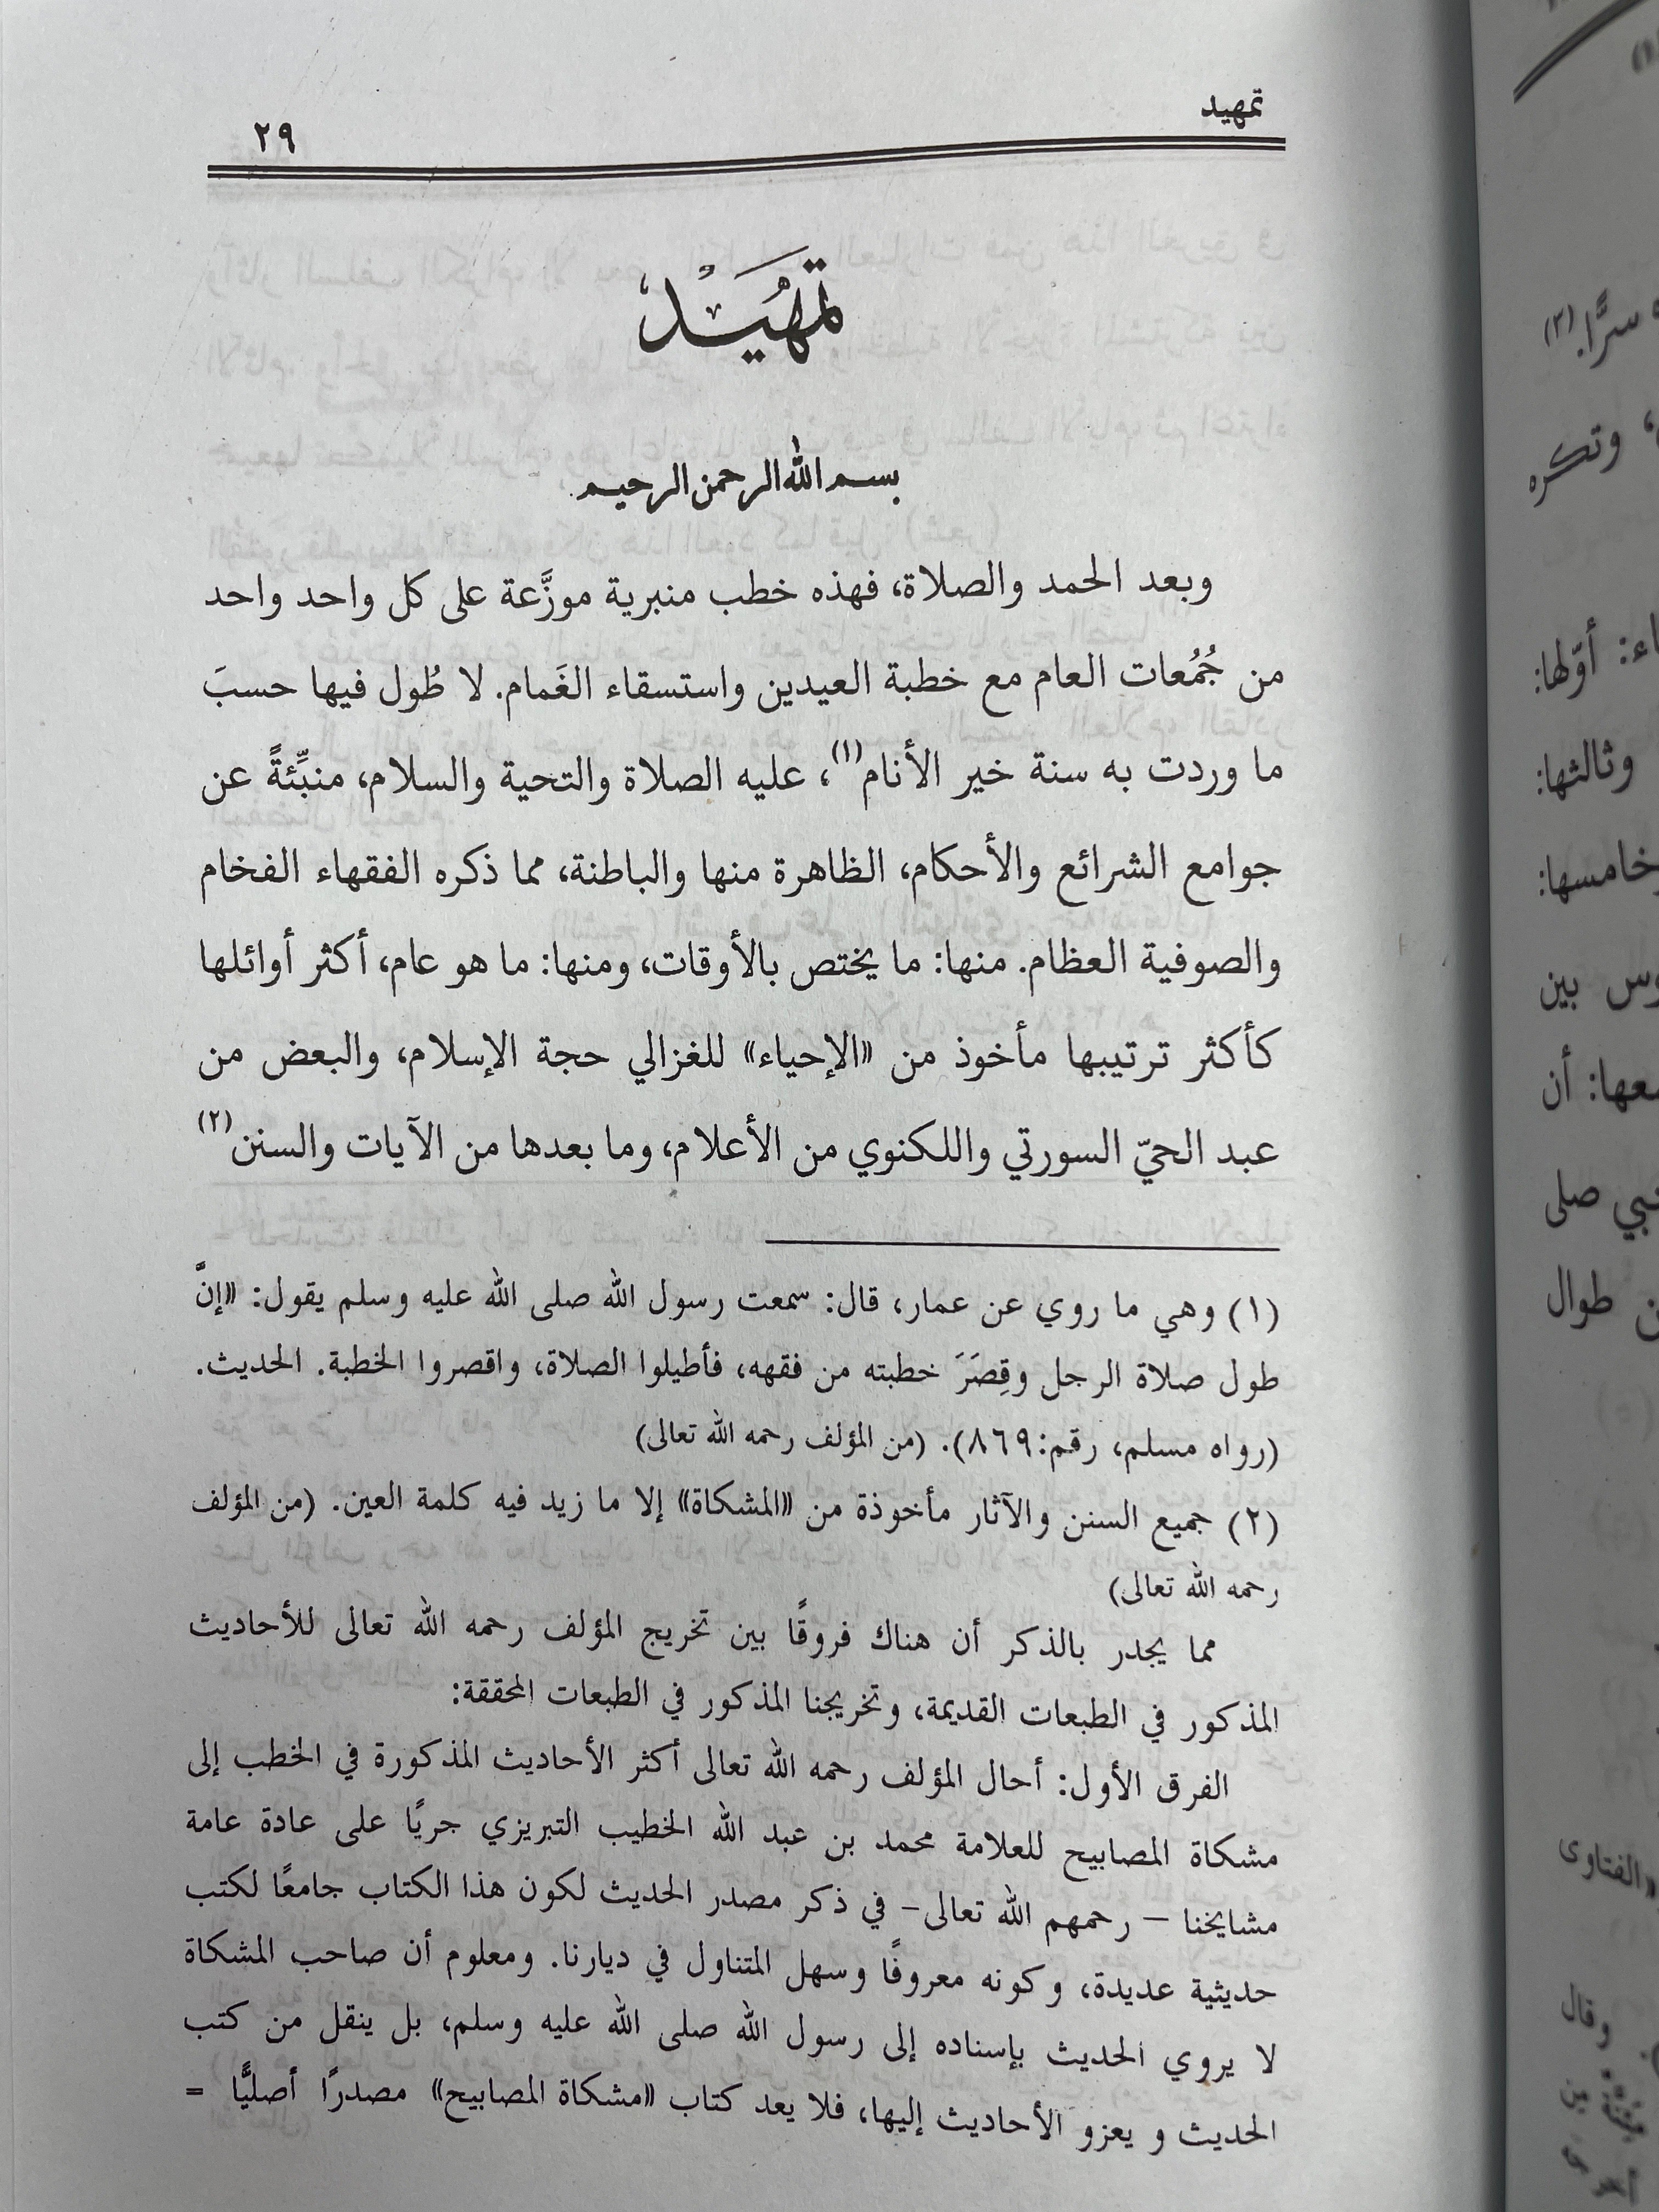 تمهيد
٢٩
تمهيد
بسم الله الرحمن الرحيم
وبعد الحمد والصلاة، فهذه خطب منبرية موزَّعة على كل واحد واحد
من جُمُعات العام مع خطبة العيدين واستسقاء الغَمام. لا طُول فيها حسبَ
ما وردت به سنة خير الأنام(١)، عليه الصلاة والتحية والسلام، منبِّئةً عن
جوامع الشرائع والأحكام، الظاهرة منها والباطنة، مما ذكره الفقهاء الفخام
والصوفية العظام. منها: ما يختص بالأوقات، ومنها: ما هو عام، أكثر أوائلها
كأكثر ترتيبها مأخوذ من «الإحياء» للغزالي حجة الإسلام، والبعض من
عبد الحيّ السورتي واللكنوي من الأعلام، وما بعدها من الآيات والسنن(٢)
(١) وهي ما روي عن عمار، قال: سمعت رسول الله صلى الله عليه وسلم يقول: «إنَّ
طول صلاة الرجل وقِصَرَ خطبته من فقهه، فأطيلوا الصلاة، واقصروا الخطبة. الحديث.
(رواه مسلم، رقم:٨٦٩). (من المؤلف رحمه الله تعالى)
(٢) جميع السنن والآثار مأخوذة من «المشكاة» إلا ما زيد فيه كلمة العين. (من المؤلف
رحمه الله تعالى)
مما يجدر بالذكر أن هناك فروقًا بين تخريج المؤلف رحمه الله تعالى للأحاديث
المذكور في الطبعات القديمة، وتخريجنا المذكور في الطبعات المحققة:
الفرق الأول: أحال المؤلف رحمه الله تعالى أكثر الأحاديث المذكورة في الخطب إلى
مشكاة المصابيح للعلامة محمد بن عبد الله الخطيب التبريزي جريًا على عادة عامة
مشايخنا – رحمهم الله تعالى- في ذكر مصدر الحديث لكون هذا الكتاب جامعًا لكتب
حديثية عديدة، وكونه معروفًا وسهل المتناول في ديارنا. ومعلوم أن صاحب المشكاة
لا يروي الحديث بإسناده إلى رسول الله صلى الله عليه وسلم، بل ينقل من كتب
الحديث و يعزو الأحاديث إليها، فلا يعد كتاب «مشكاة المصابيح» مصدرًا أصليًّا =
سرًّا.(٢)
وتكره
أوّلها:
وثالثها:
بين
أن
صلى
طوال
«الفتاوى
وقال